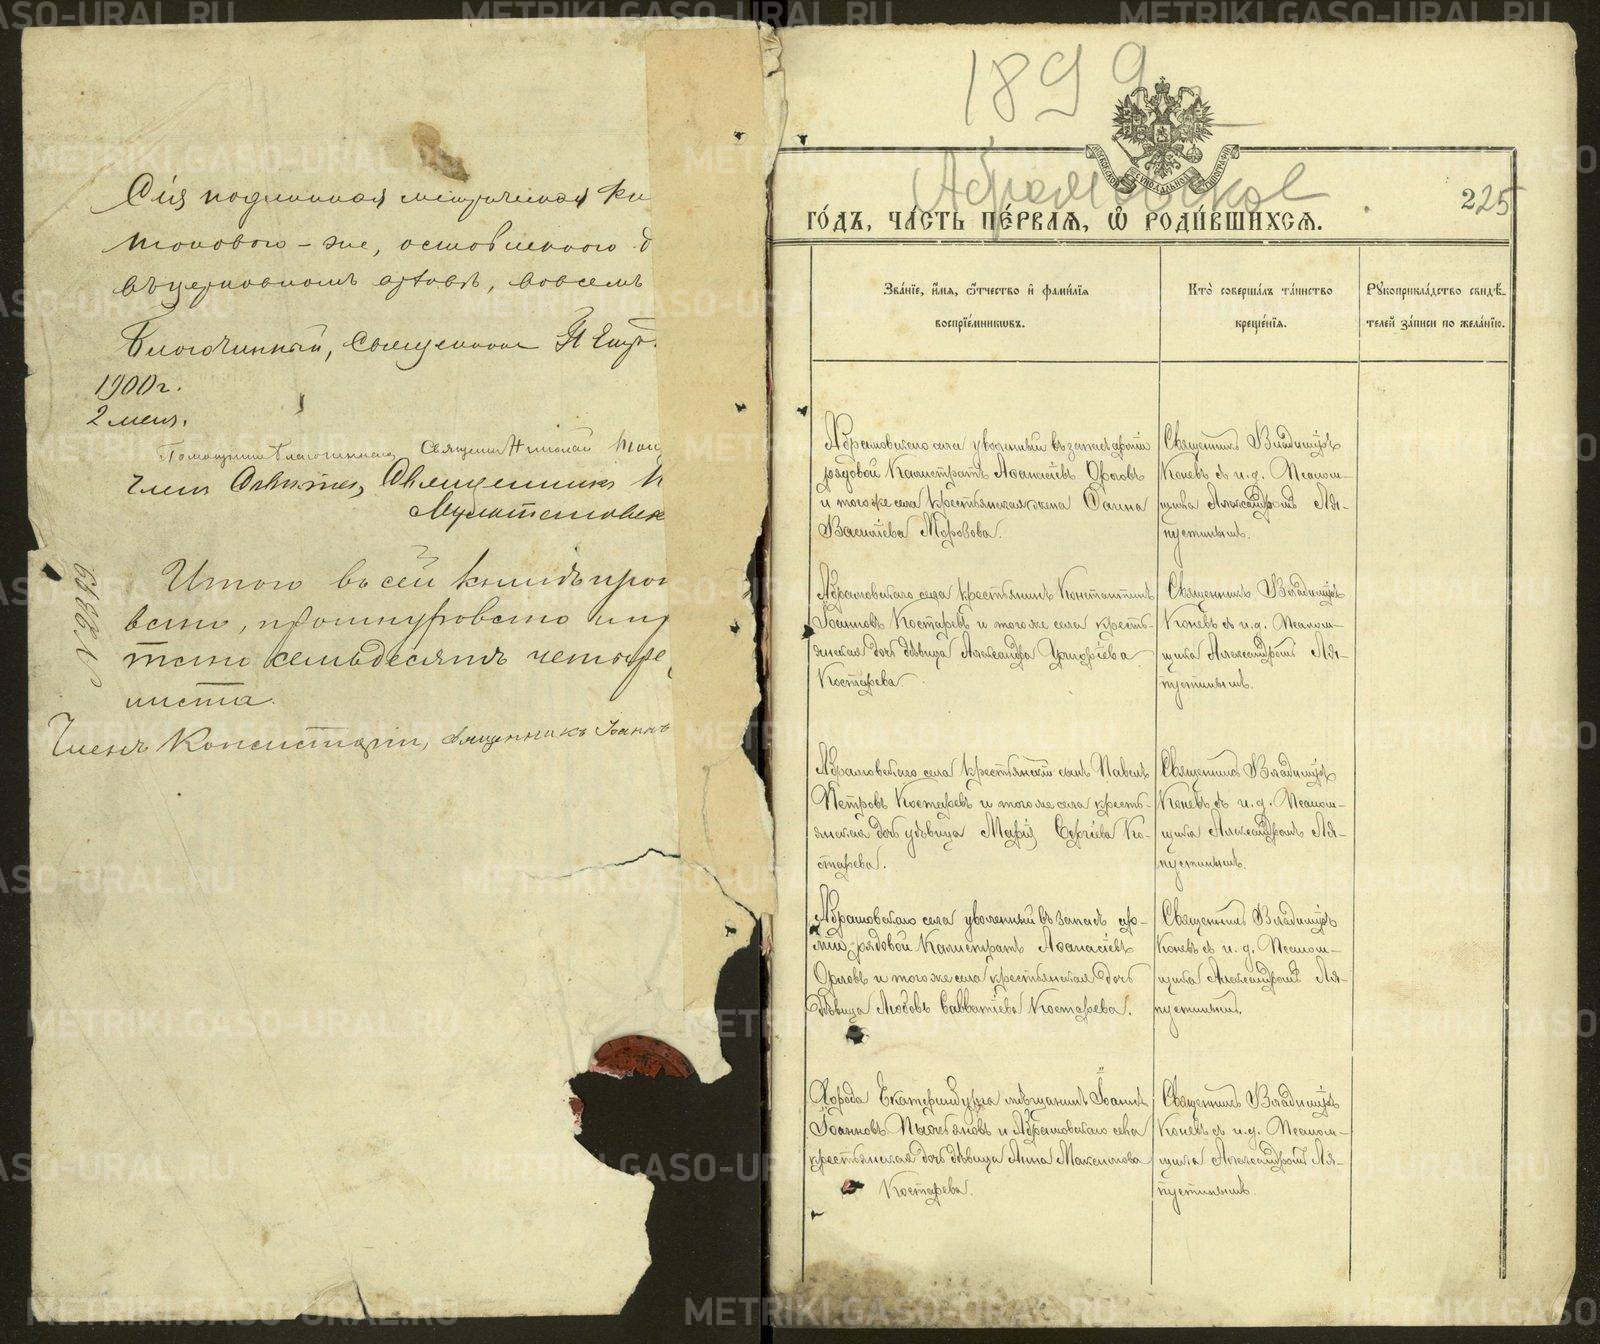 Сія подлинная метрическая кн
токоваго-же, оставленного д
въ церковномъ архивѣ, вовсемъ
Благочинный, Священник П Ещр.
1900 г.
2 мая.
Помощник благочиннаго Священ Николай
Член Священникъ
Итого въ сей книгѣ прон
вано, прошнуровано и пр
семьдесятъ четыре
листа.
Членъ Консисторіи, священникъ Іоаннъ
№ 2319
1899
Абрамовское
225
МОСКОВСКОЙ СѴНОДАЛЬНОЙ ТИПОГРАФІИ
ГО́ДЪ, ЧА́СТЬ ПЕ́РВАѦ, Ѽ РОДИ́ВШИХСѦ.
Зва́нїе, и҆́мѧ, ѻ҆́тчество и҆ фами́лїѧ
воспрїе́мникѡвъ.
Кто̀ соверша́лъ та́инство
креще́нїѧ.
Рꙋкоприкла́дство свидѣ́-
телей за́писи по жела́нїю.
Абрамовскаго села уволенный въ запасъ арміи
рядовой Калистратъ Аѳанасіевъ Орловъ
и того же села крестьянская жена Фаина
Василіева Морозова.
Священникъ Владиміръ
Коневъ съ и. д. Псалом-
щика Александромъ Ля-
пустинымъ.
Абрамовскаго села крестьянинъ Константинъ
Іоанновъ Костаревъ и того же села кресть-
янская дочь дѣвица Александра Григоріева
Костарева.
Священникъ Владиміръ
Коневъ съ и. д. Псалом-
щика Александромъ Ля-
пустинымъ.
Абрамовскаго села крестьянскій сынъ Павелъ
Петровъ Костаревъ и того же села кресть-
янская дочь дѣвица Марія Сергіева Ко-
старева.
Священникъ Владиміръ
Коневъ съ и. д. Псалом-
щика Александромъ Ля-
пустинымъ.
Абрамовскаго села уволенный въ запасъ ар-
міи рядовой Калистратъ Аѳанасіевъ
Орловъ и того же села крестьянская дочь
дѣвица Любовь Савватіева Костарева.
Священникъ Владиміръ
Коневъ съ и. д. Псалом-
щика Александромъ Ля-
пустинымъ.
Города Екатеринбурга мѣщанинъ Іоаннъ
Іоанновъ и Абрамовскаго села
крестьянская дочь дѣвица Анна Максимова
Костарева.
Священникъ Владиміръ
Коневъ съ и. д. Псалом-
щика Александромъ Ля-
пустинымъ.
METRIKI.GASO-URAL.RU